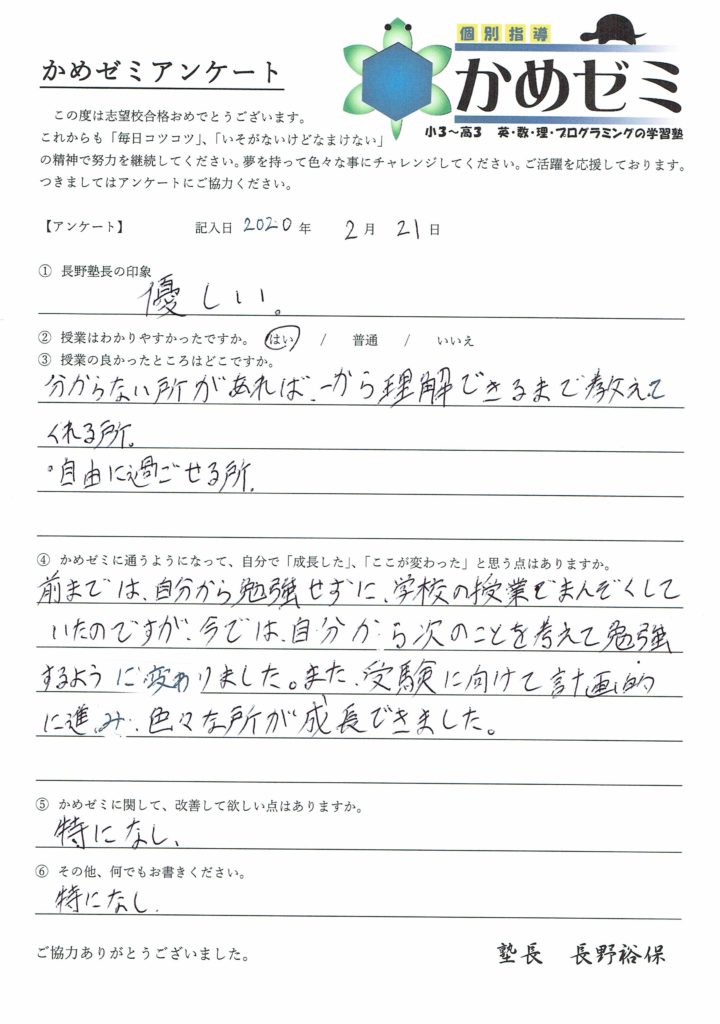 かめゼミアンケート
個別指導
かめゼミ
小3～高3 英・数・理・プログラミングの学習塾
この度は志望校合格おめでとうございます。
これからも「毎日コツコツ」、「いそがないけどなまけない」
の精神で努力を継続してください。夢を持って色々な事にチャレンジしてください。ご活躍を応援しております。
つきましてはアンケートにご協力ください。
【アンケート】 記入日 2020 年 2 月 21 日
① 長野塾長の印象
優しい。
② 授業はわかりやすかったですか。 はい / 普通 / いいえ
③ 授業の良かったところはどこですか。
分からない所があれば、一から理解できるまで教えて
くれる所。
・自由に過ごせる所。
④ かめゼミに通うようになって、自分で「成長した」、「ここが変わった」と思う点はありますか。
前までは、自分から勉強せずに、学校の授業でまんぞくして
いたのですが、今では、自分から次のことを考えて勉強
するように変わりました。また、受験に向けて計画的
に進み、色々な所が成長できました。
⑤ かめゼミに関して、改善して欲しい点はありますか。
特になし、
⑥ その他、何でもお書きください。
特になし.
ご協力ありがとうございました。
塾長 長野裕保